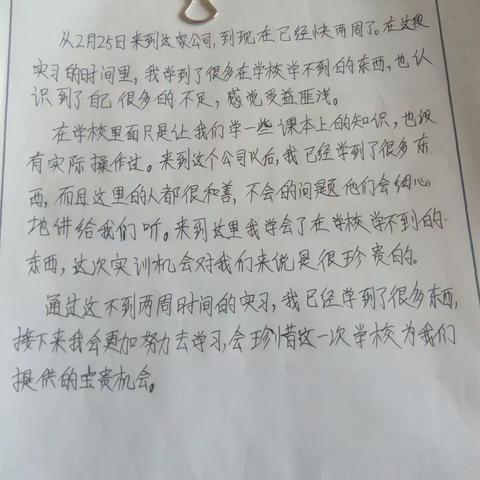 从2月25日来到这家公司,到现在已经快两周了。在这段
实习的时间里,我学到了很多在学校学不到的东西,也认
识到了自己很多的不足,感觉受益匪浅。
在学校里面只是让我们学一些课本上的知识,也没
有实际操作过。来到这个公司以后,我已经学到了很多东
西,而且这里的人都很和善,不会的问题他们会细心
地讲给我们听。来到这里我学会了在学校学不到的
东西,这次实训机会对我们来说是很珍贵的。
通过这不到两周时间的实习,我已经学到了很多东西,
接下来我会更加努力去学习,会珍惜这一次学校为我们
提供的宝贵机会。